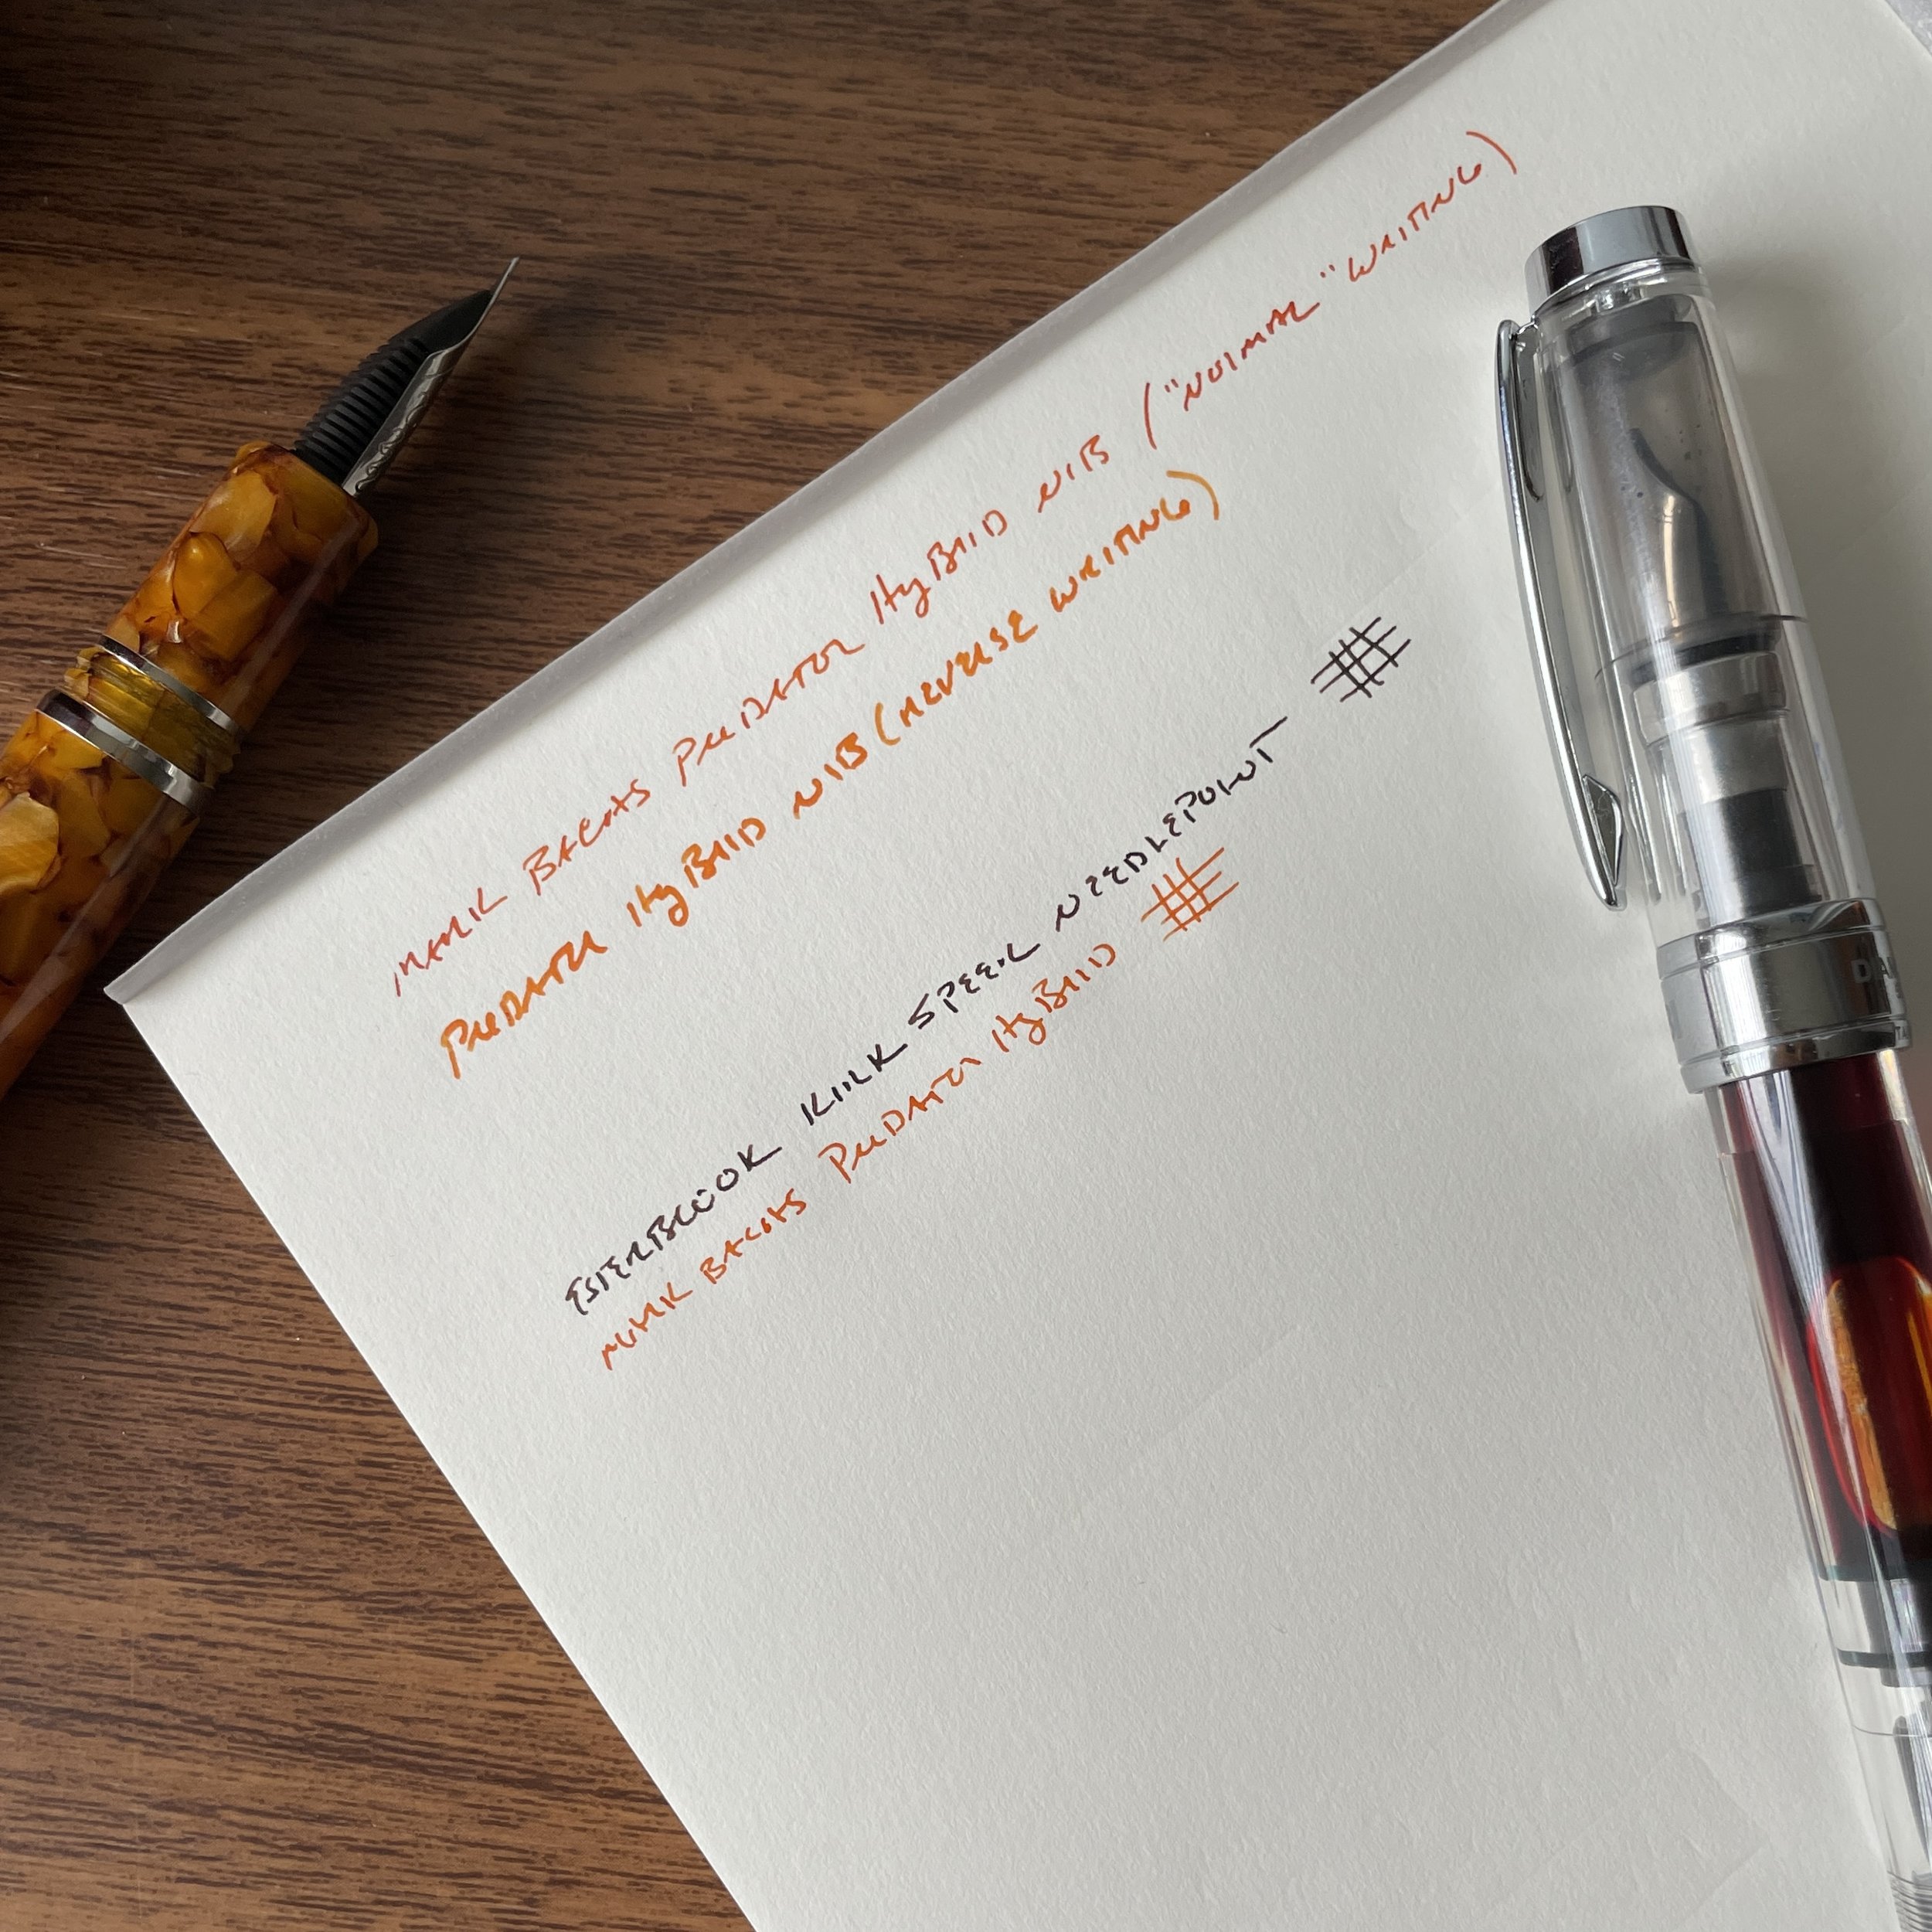 MARK BACAS PREDATOR HYBRID NIB ("NORMAL" WRITING)
PREDATOR HYBRID NIB (REVERSE WRITING)
ESTERBROOK KIRK SPEER NEEDLEPOINT
MARK BACAS PREDATOR HYBRID